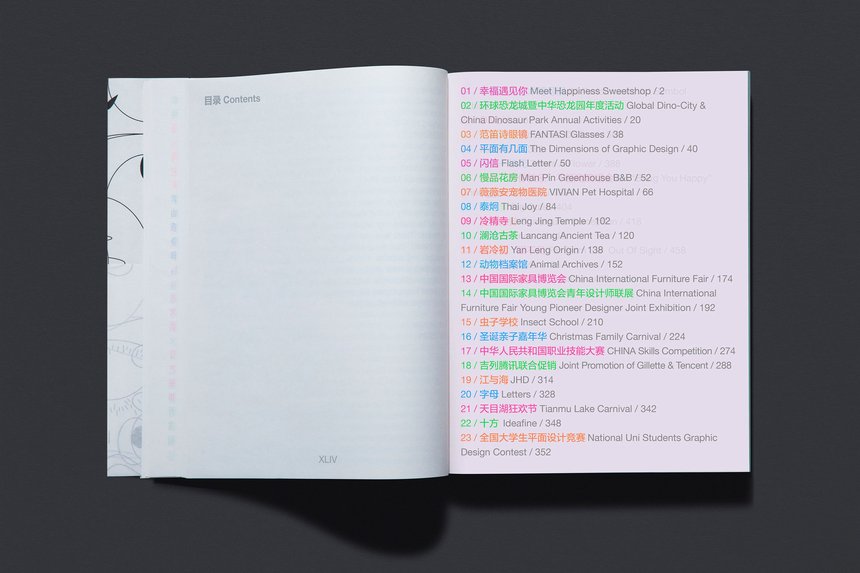 目录 Contents
XLIV
01 / 幸福遇见你 Meet Happiness Sweetshop / 2
02 / 环球恐龙城暨中华恐龙园年度活动 Global Dino-City &
China Dinosaur Park Annual Activities / 20
03 / 范笛诗眼镜 FANTASI Glasses / 38
04 / 平面有几面 The Dimensions of Graphic Design / 40
05 / 闪信 Flash Letter / 50
06 / 慢品花房 Man Pin Greenhouse B&B / 52
07 / 薇薇安宠物医院 VIVIAN Pet Hospital / 66
08 / 泰炯 Thai Joy / 84
09 / 冷精寺 Leng Jing Temple / 102
10 / 澜沧古茶 Lancang Ancient Tea / 120
11 / 岩冷初 Yan Leng Origin / 138
12 / 动物档案馆 Animal Archives / 152
13 / 中国国际家具博览会 China International Furniture Fair / 174
14 / 中国国际家具博览会青年设计师联展 China International
Furniture Fair Young Pioneer Designer Joint Exhibition / 192
15 / 虫子学校 Insect School / 210
16 / 圣诞亲子嘉年华 Christmas Family Carnival / 224
17 / 中华人民共和国职业技能大赛 CHINA Skills Competition / 274
18 / 吉列腾讯联合促销 Joint Promotion of Gillette & Tencent / 288
19 / 江与海 JHD / 314
20 / 字母 Letters / 328
21 / 天目湖狂欢节 Tianmu Lake Carnival / 342
22 / 十方 Ideafine / 348
23 / 全国大学生平面设计竞赛 National Uni Students Graphic
Design Contest / 352